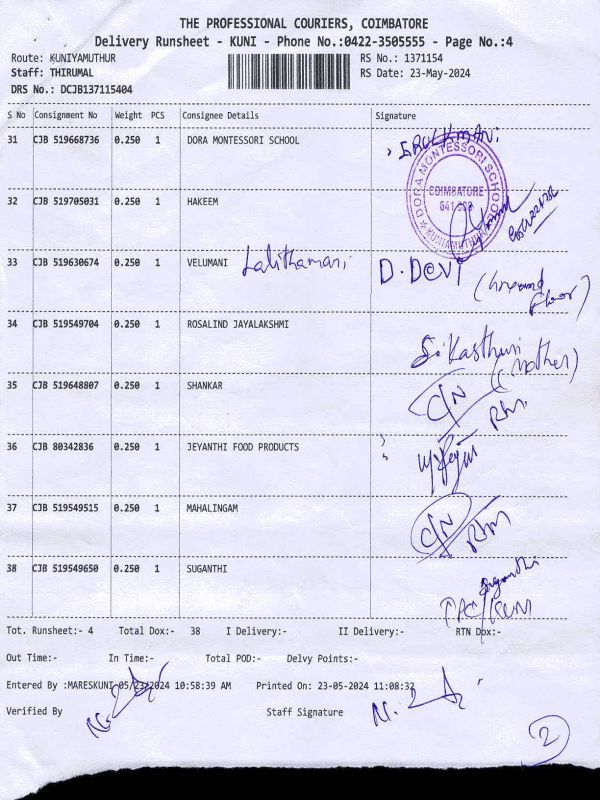 THE PROFESSIONAL COURIERS, COIMBATORE
Delivery Runsheet - KUNI - Phone No.:0422-3505555 - Page No.:4
Route: KUNIYAMUTHUR RS No.: 1371154
Staff: THIRUMAL RS Date: 23-May-2024
DRS No.: DCJB137115404
S No Consignment No Weight PCS Consignee Details Signature
31 CJB 519668736 0.250 1 DORA MONTESSORI SCHOOL
DORA MONTESSORI SCHOOL
COIMBATORE
KUNIAMUTHUR
32 CJB 519705031 0.250 1 HAKEEM
33 CJB 519630674 0.250 1 VELUMANI Lalithamani D. Devi
34 CJB 519549704 0.250 1 ROSALIND JAYALAKSHMI S. Kasthuri
(Mother)
35 CJB 519648807 0.250 1 SHANKAR C/N
36 CJB 80342836 0.250 1 JEYANTHI FOOD PRODUCTS
37 CJB 519549515 0.250 1 MAHALINGAM C/N
38 CJB 519549650 0.250 1 SUGANTHI Suganthi
Tot. Runsheet:- 4 Total Dox:- 38 I Delivery:- II Delivery:- RTN Dox:-
Out Time:- In Time:- Total POD:- Delvy Points:-
Entered By :MARESKUNI 05/23/2024 10:58:39 AM Printed On: 23-05-2024 11:08:32
Verified By Staff Signature
2